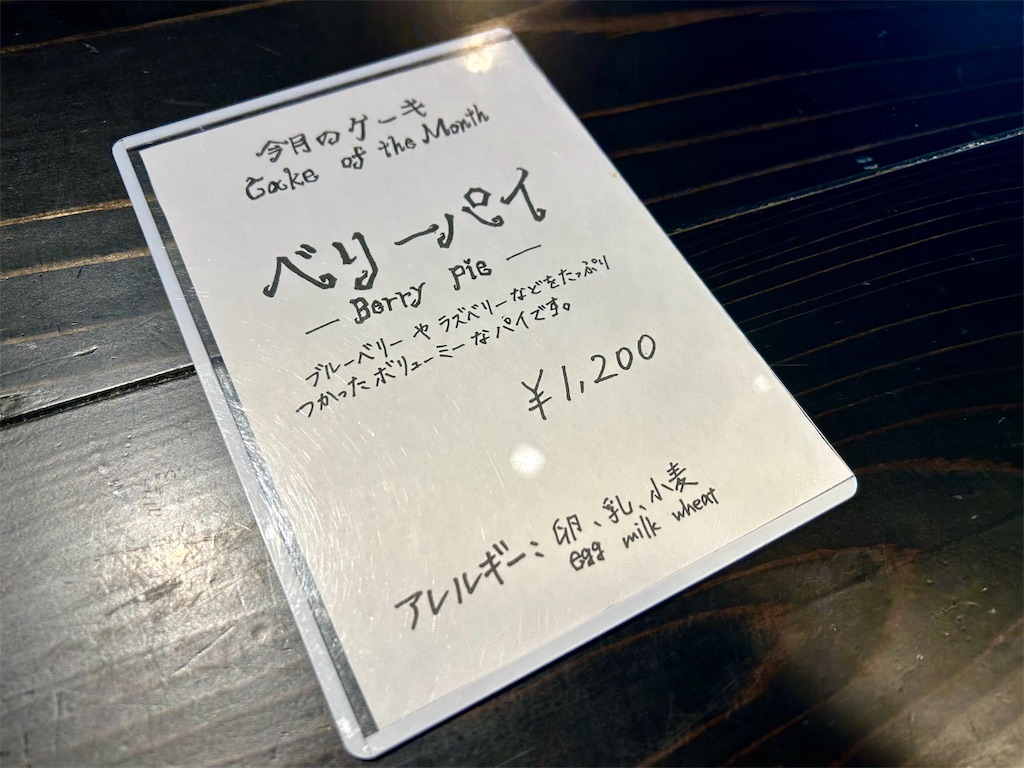 今月のケーキ
Cake of the Month
ベリーパイ
— Berry pie —
ブルーベリーやラズベリーなどをたっぷり
つかったボリューミーなパイです。
¥1,200
アレルギー：卵、乳、小麦
egg milk wheat